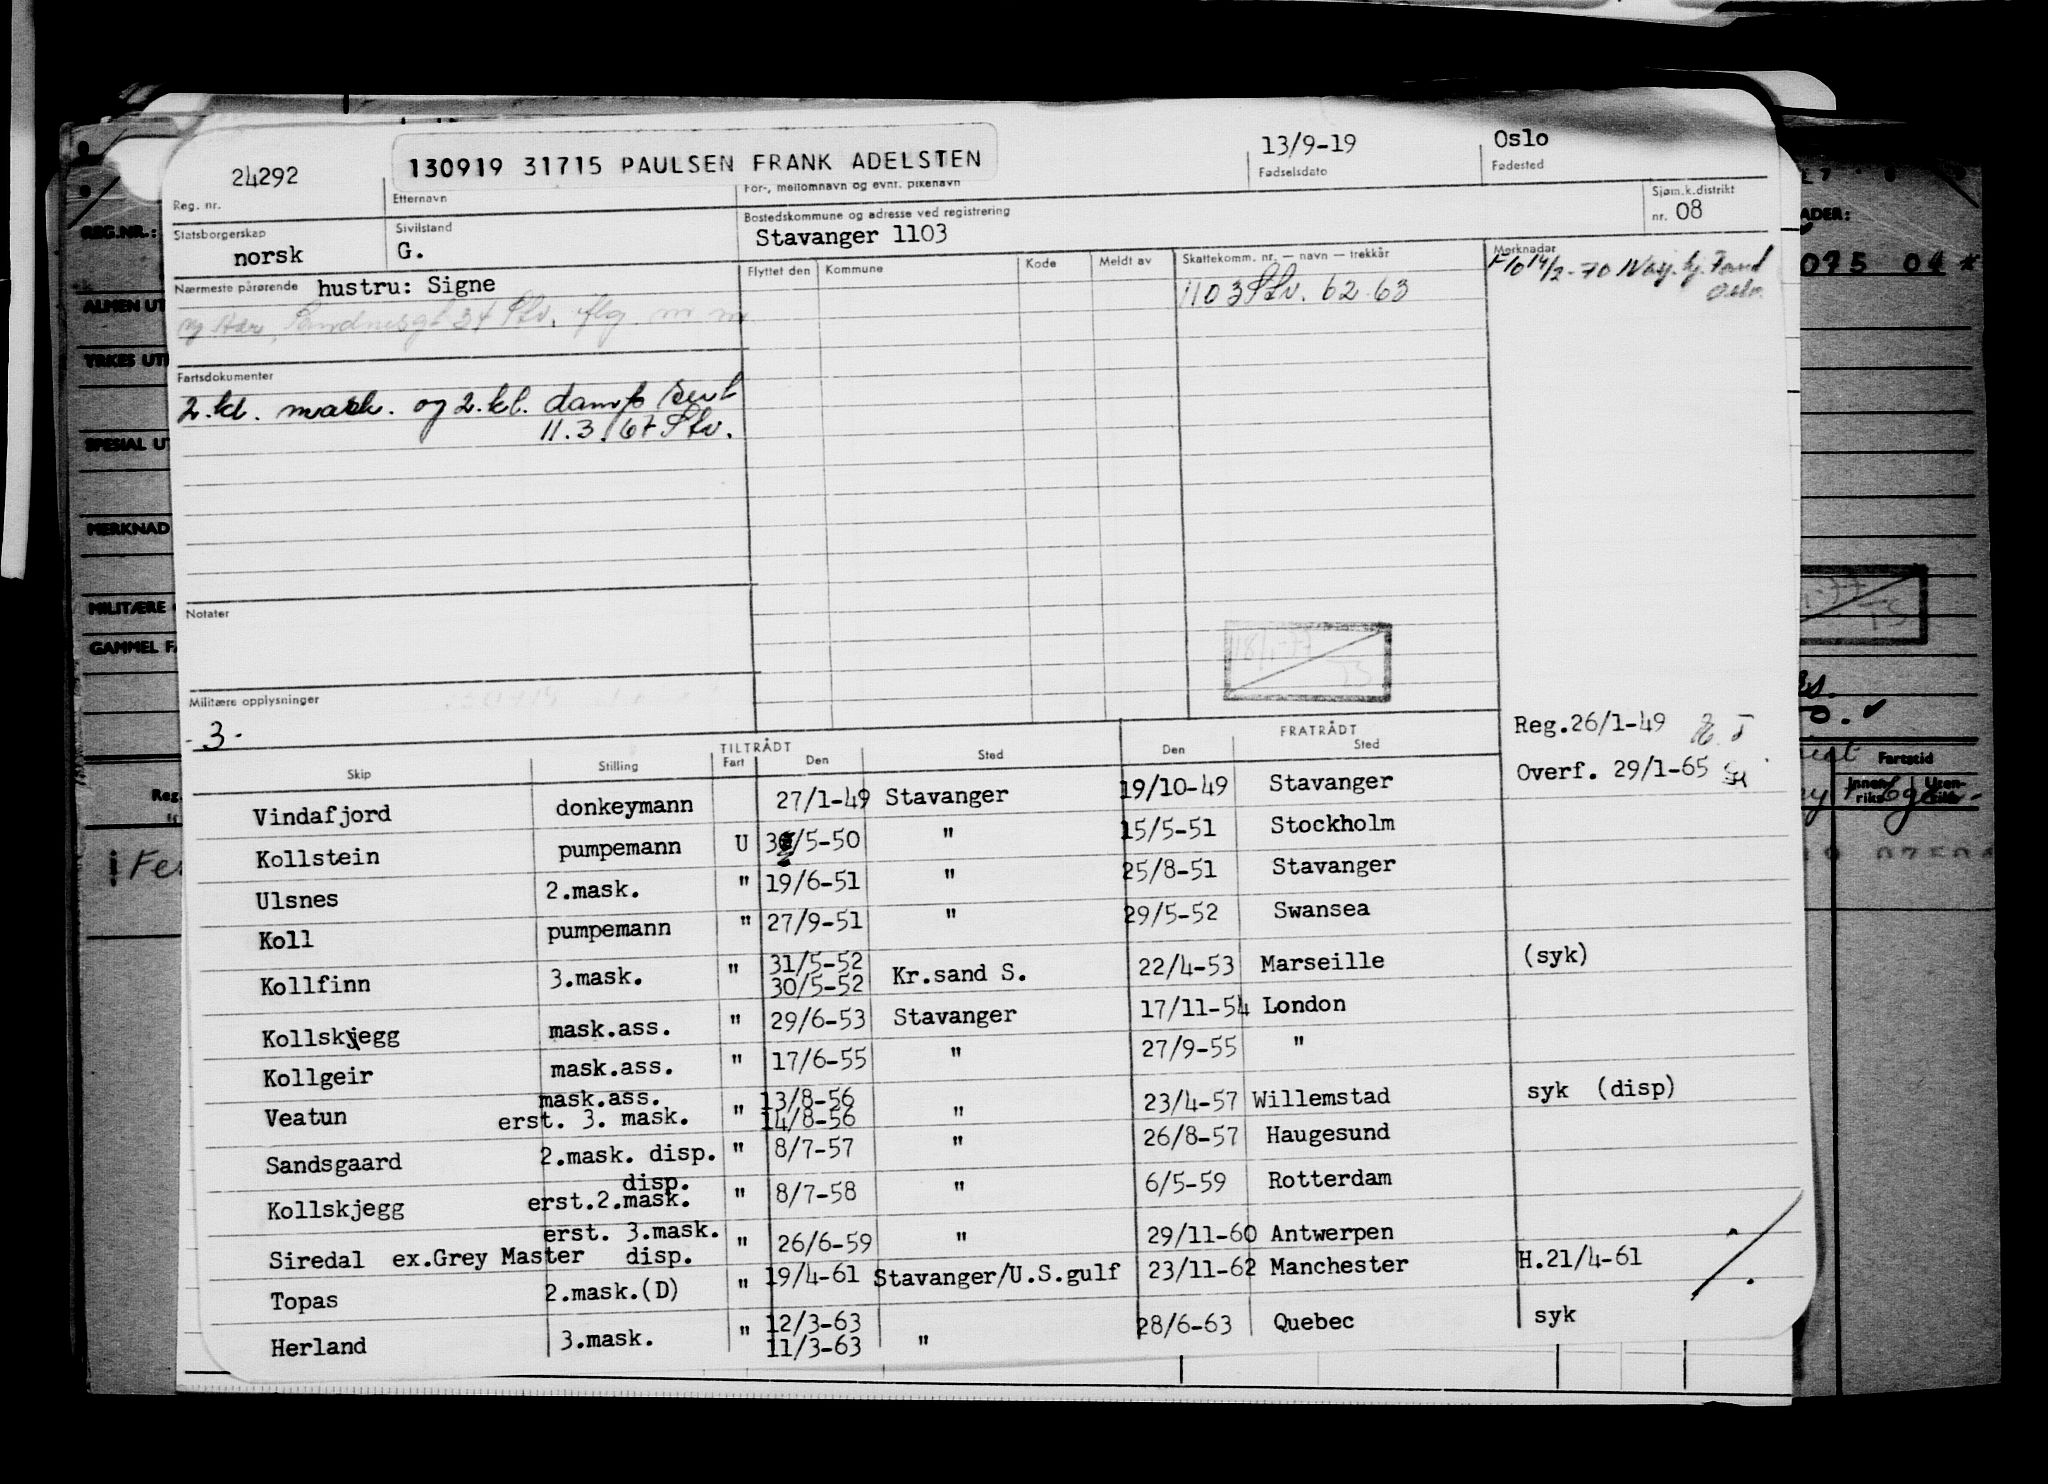 24292
Reg. nr.
130919 31715 PAULSEN FRANK ADELSTEN
Etternavn
For-, mellomnavn og evnt. pikenavn
13/9-19
Fødselsdato
Oslo
Fødested
Statsborgerskap
norsk
Sivilstand
G.
Bostedskommune og adresse ved registrering
Stavanger 1103
Sjøm.k.distrikt
nr. 08
Nærmeste pårørende hustru: Signe
Flyttet den Kommune Kode Meldt av
Skattekomm. nr. — navn — trekkår
1103 Stv. 62-63
Merknader
14/2-70
Fartsdokumenter
2.kl. mask. og 2.kl. damp sert
11.3.67 Stv.
Notater
Militære opplysninger
-3-
Reg.26/1-49
Overf. 29/1-65
TILTRÅDT FRATRÅDT
Skip Stilling Fart Den Sted Den Sted
Vindafjord donkeymann 27/1-49 Stavanger 19/10-49 Stavanger
Kollstein pumpemann U /5-50 " 15/5-51 Stockholm
Ulsnes 2.mask. " 19/6-51 " 25/8-51 Stavanger
Koll pumpemann " 27/9-51 " 29/5-52 Swansea
31/5-52
Kollfinn 3.mask. " 30/5-52 Kr.sand S. 22/4-53 Marseille (syk)
Kollskjegg mask.ass. " 29/6-53 Stavanger 17/11-54 London
Kollgeir mask.ass. " 17/6-55 " 27/9-55 "
mask.ass. 13/8-56
Veatun erst. 3. mask. " 14/8-56 " 23/4-57 Willemstad syk (disp)
Sandsgaard 2.mask. disp. " 8/7-57 " 26/8-57 Haugesund
disp.
Kollskjegg erst.2.mask. " 8/7-58 " 6/5-59 Rotterdam
erst. 3.mask.
Siredal ex.Grey Master disp. " 26/6-59 " 29/11-60 Antwerpen
Topas 2.mask.(D) " 19/4-61 Stavanger/U.S.gulf 23/11-62 Manchester H.21/4-61
12/3-63
Herland 3.mask. " 11/3-63 " 28/6-63 Quebec syk
REG.NR.:
ALMEN UT
YRKES UT
SPESIAL UT
MERKNAD
MILITÆRE
GAMMEL FA
Reg.
ADER:
075 04 *
Fartstid
Innen-
riks
Uten-
riks